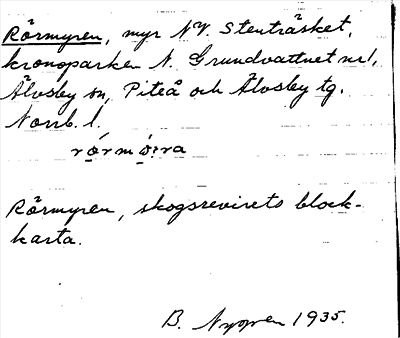 Rörmyren, myr N.V. Stenträsket,
kronoparken N. Grundvattnet nr 1,
Älvsby sn, Piteå och Älvsby tg.
Norrb. l.
rǫ́rmǫ́ra
Rörmyren, skogsrevirets block-
karta.
B. Nygren 1935.